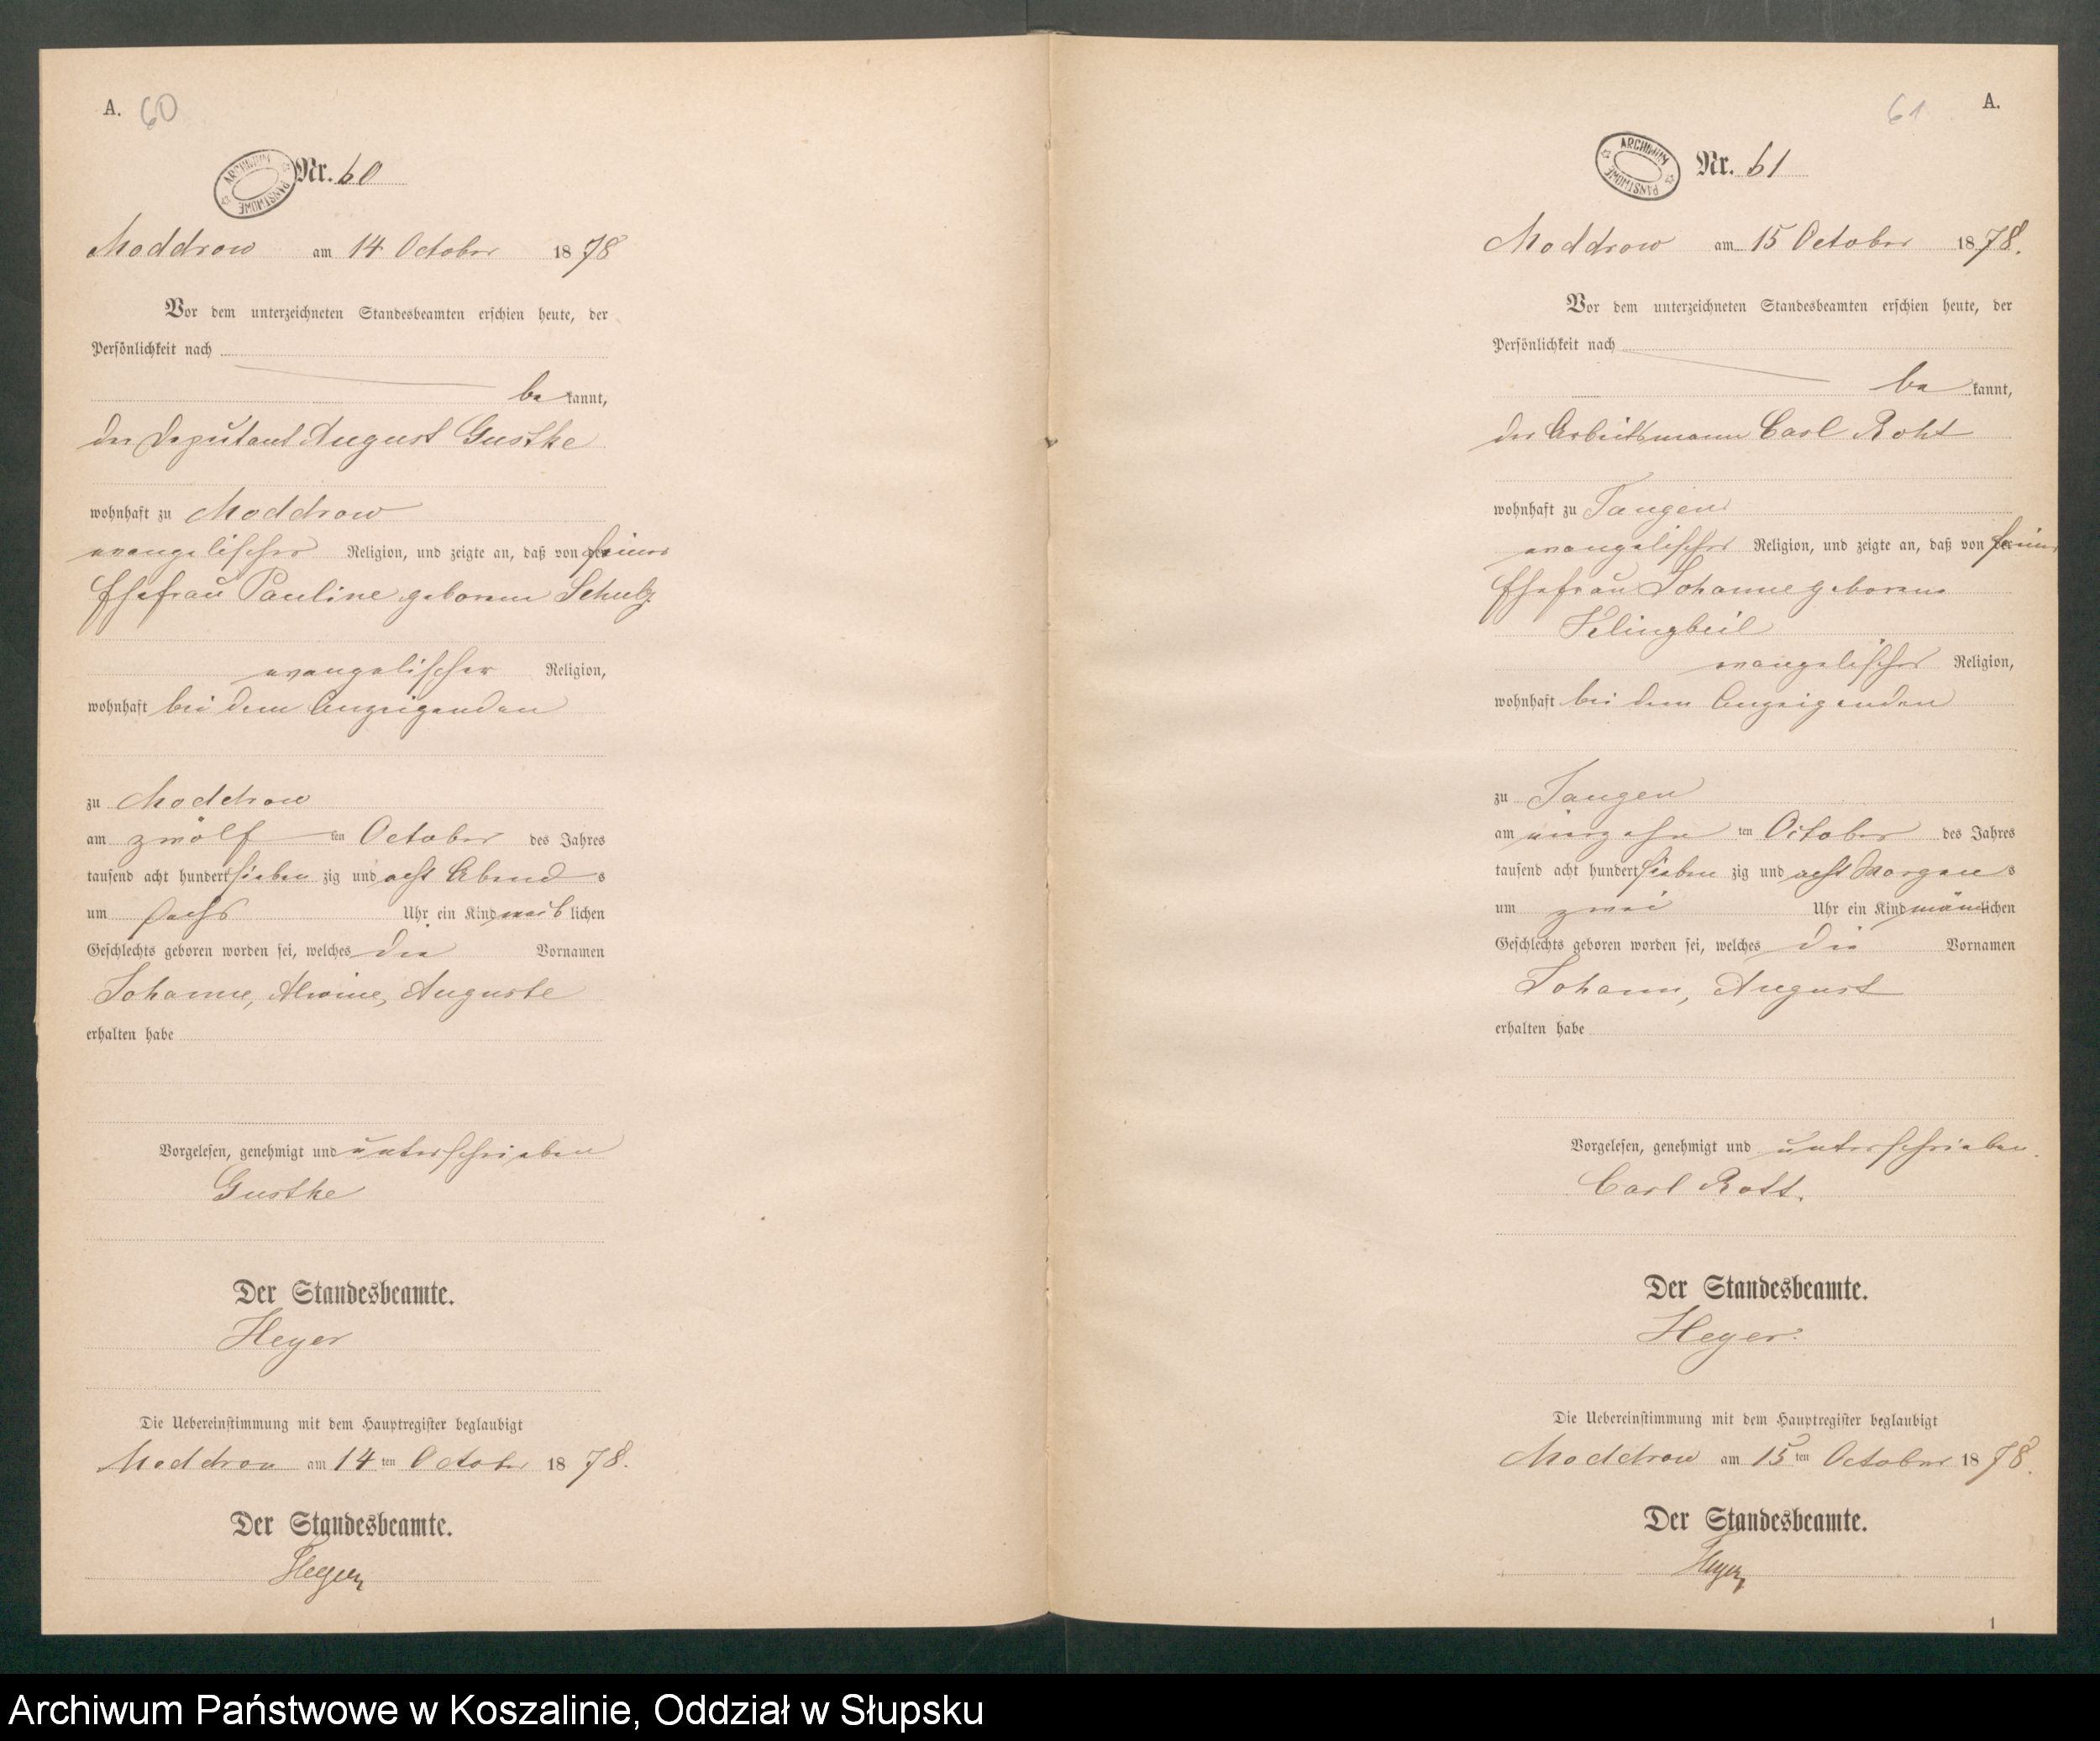 A. 60
ARCHIWUM PAŃSTWOWE
Nr. 60
Moddrow am 14 October 1878
Vor dem unterzeichneten Standesbeamten erschien heute, der
Persönlichkeit nach
bekannt,
der Deputant August Gustke
wohnhaft zu Moddrow
evangelischer Religion, und zeigte an, daß von seiner
Ehefrau Pauline geborene Schulz
evangelischer Religion,
wohnhaft bei dem Anzeigenden
zu Moddrow
am zwölf ten October des Jahres
tausend acht hundert sieben zig und acht Abends
um sechs Uhr ein Kind weiblichen
Geschlechts geboren worden sei, welches die Vornamen
Johanne, Alwine, Auguste
erhalten habe
Vorgelesen, genehmigt und unterschrieben
Gustke
Der Standesbeamte.
Heyer
Die Uebereinstimmung mit dem Hauptregister beglaubigt
Moddrow am 14 ten October 1878.
Der Standesbeamte.
Heyer
61 A.
ARCHIWUM PAŃSTWOWE
Nr. 61
Moddrow am 15 October 1878.
Vor dem unterzeichneten Standesbeamten erschien heute, der
Persönlichkeit nach
bekannt,
der Arbeitsmann Carl Roht
wohnhaft zu Tangen
evangelischer Religion, und zeigte an, daß von seiner
Ehefrau Johanne geborene
Klingbeil
evangelischer Religion,
wohnhaft bei dem Anzeigenden
zu Tangen
am vierzehn ten October des Jahres
tausend acht hundert sieben zig und acht Morgens
um zwei Uhr ein Kind männlichen
Geschlechts geboren worden sei, welches die Vornamen
Johann, August
erhalten habe
Vorgelesen, genehmigt und unterschrieben.
Carl Rott.
Der Standesbeamte.
Heyer.
Die Uebereinstimmung mit dem Hauptregister beglaubigt
Moddrow am 15 ten October 1878.
Der Standesbeamte.
Heyer
1
Archiwum Państwowe w Koszalinie, Oddział w Słupsku